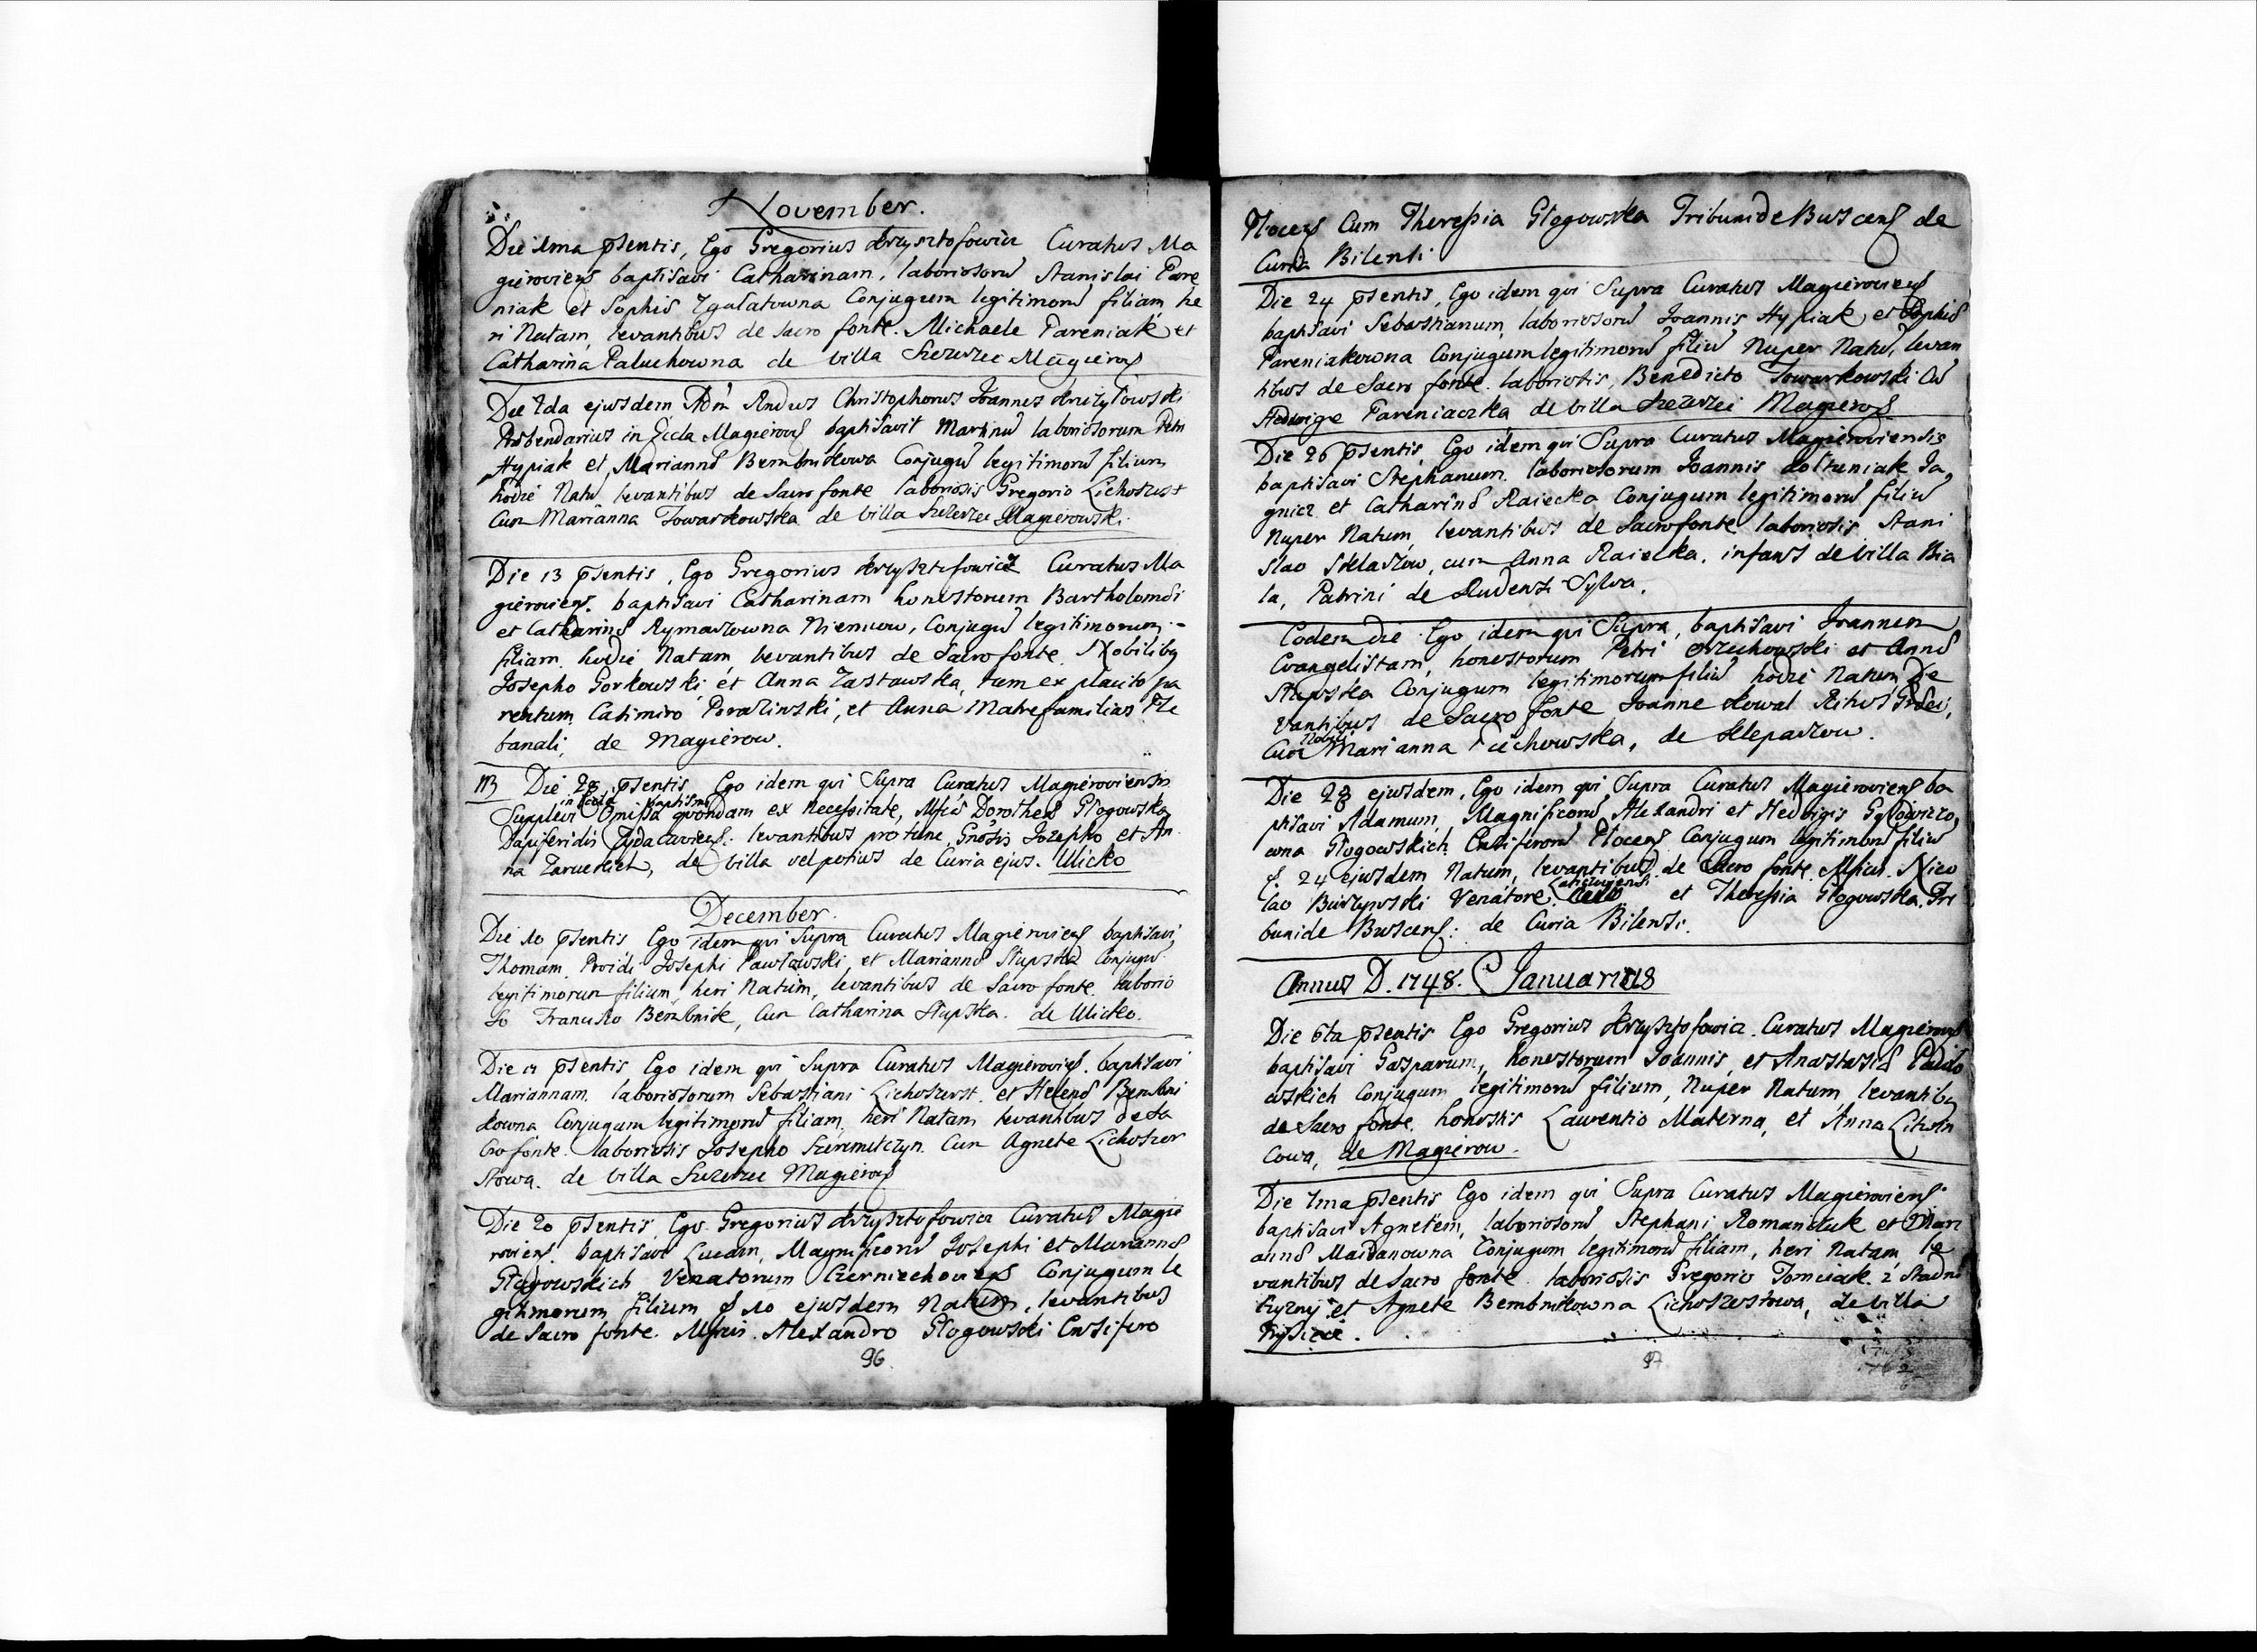 November.
Die 1ma psentis, Ego Gregorius Krzysztofowicz Curatus Ma
gieroviens baptisavi Catharinam, laboriosorū Stanislai Pare
niak et Sophiæ Zgalatowna Conjugum legitimorū filiam, he
ri Natam, levantibus de Sacro fonte. Michaele Pareniak et
Catharina Paluchowna de villa Szczerzec Magierov
Die 2da ejusdem Adm Rndus Christophorus Joannes Krczyłowski
Præbendarius in Eccla Magierovs baptisavit Martinū laboriosorum Petri
Hypiak et Mariannæ Bembnikowa Conjugū legitimorū filium
hodie Natū levantibus de Sacro fonte laboriosis Gregorio Lichoszerst
Cum Marianna Towarkowska de villa Szczerzec Magierowski.
Die 13 psentis, Ego Gregorius Krzysztofowicz Curatus Ma
gieroviens. baptisavi Catharinam honestorum Bartholomæi
et Catharinæ Rymarzowna Niemcow, Conjugū legitimorum -
filiam hodie Natam, levantibus de Sacro fonte Nobilibq
Josepho Gorkowski et Anna Zastawska, tum ex placito pa
rentum Casimiro Porazinski, et Anna Matrefamilias Ple
banali, de Magierow.
NB Die 28 psentis Ego idem qui Supra Curatus Magieroviensis
in Eccla baptismo
Supplevi Omissa quondam ex necessitate, Mficæ Dorotheæ Głogowska
Dapiferidis Zydaczoviens: levantibus pro tunc, Gnosis Jozepho et An
na Zaruckich, de villa vel potius de Curia ejus. Ulicko
December.
Die 10 psentis Ego idem qui Supra Curatus Magieroviens baptisavi
Thomam, Providi Josephi Pawławski, et Mariannæ Słupska Conjugū
legitimorum filium, heri Natum, levantibus de Sacro fonte. laborio
so Francisko Bembnik, Cum Catharina Słupska. de Ulicko.
Die 11 psentis Ego idem qui Supra Curatus Magierovieñ. baptisavi
Mariannam, laboriosorum Sebastiani Lichoszerst. et Helenæ Bembni
kowna Conjugum legitimorū filiam, heri Natam levantibus de Sa
cro fonte. laboriosis Josepho Szeremetczyn. Cum Agnete Lichoszer
stowa. de villa Szczerzec Magierovs
Die 20 psentis, Ego. Gregorius Krzysztofowicz Curatus Magie
roviens. baptisavi Lucam, Magnificorū Josephi et Mariannæ
Głogowskich Venatorum Czerniechoviens Conjugum le
gitimorum filium d. 10 ejusdem Natum, levantibus
de Sacro fonte. Mficis. Alexandro Głogowski Ensifero
96.
Płocens Cum Theressia Głogowska Tribunide Buscens de
Curia Bilensi
Die 24 psentis, Ego idem qui Supra Curatus Magieroviens
baptisavi Sebastianum, laboriosorū Joannis Hypiak, et Sophiæ
Pareniakowna Conjugum legitimorū filiū Nuper Natū, levan
tibus de Sacro fonte. laboriosis, Benedicto Towarkowski Cū
Hedwige Pareniaczka de villa Szczerzei Magierovs
Die 26 psentis, Ego idem qui Supra Curatus Magieroviensis
baptisavi Stephanum, laboriosorum Joannis Kołtuniak Ja
gnicz et Catharinæ Raiecka Conjugum legitimorū filiū
Nuper Natum, levantibus de Sacro fonte laboriosis Stani
slao Szklarzow, cum Anna Raiecka, infans de villa Bia
la, Patrini de Rudensi Sylva.
Eodem die Ego idem qui Supra, baptisavi Joannem
Evangelistam, honestorum Petri Orzechowski et Annæ
Słupska Conjugum legitimorum filiū hodie Natum le
vantibus de Sacro fonte Joanne Kowal Ritus Græci,
Nobili
Cum Marianna Puchowska, de Kleparzow.
Die 28 ejusdem, Ego idem qui Supra Curatus Magieroviens ba
ptisavi Adamum, Magnificorū Alexandri et Hedvigis Gołowiczo
wna Głogowskich Ensiferorū Płocens Conjugum legitimorū filiū
d. 24 ejusdem Natum, levantibus de Sacro fonte Mficis. Nico
Laticzoviensi
lao Buszynski Venatore et Theressia Głogowska. Tri
bunide Buscens: de Curia Bilensi.
Annus D. 1748. Januarius
Die 6ta psentis Ego Gregorius Krzysztofowicz Curatus Magierovs
baptisavi Gasparum, honestorum Joannis, et Anastasiæ Pawło
wskich Conjugum legitimorū filium, Nuper Natum, levantibq
de Sacro fonte. honestis Laurentio Materna, et Anna Litwin
cowa, de Magierow.
Die 7ma psentis Ego idem qui Supra Curatus Magieroviens
baptisavi Agnetem, laboriosorū Stephani Romaniuk et Mari
annæ Maidanowna Conjugum legitimorū filiam, heri Natam, le
vantibus de Sacro fonte. laboriosis Gregorio Tomciak z Stadni
et Agnete Bembnikowna Lichoszestowa, de villa
97